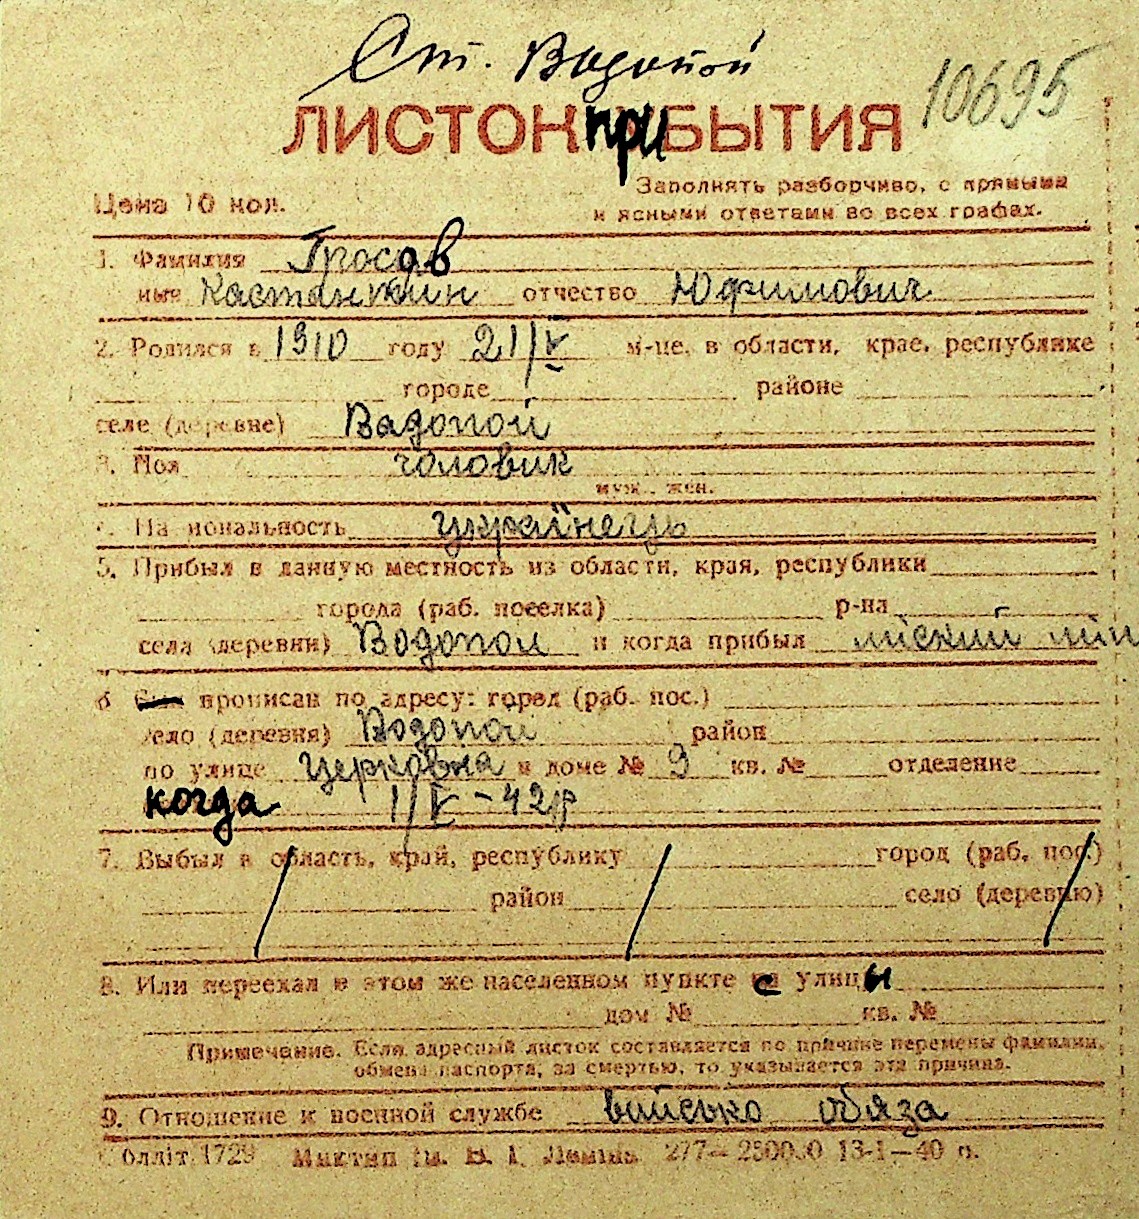 Ст. Водопой
ЛИСТОК ПРИБЫТИЯ 10695
Цена 10 коп. Заполнять разборчиво, с прямыми
и ясными ответами во всех графах.
1. Фамилия Гросав
имя Кастянткин отчество Юфимович
2. Родился в 1910 году 21/V м-це, в области, крае, республике
городе районе
селе (деревне) Вадопой
3. Пол чоловик
муж., жен.
4. Национальность українець
5. Прибыл в данную местность из области, края, республики
города (раб. поселка) р-на
села (деревни) Водопой и когда прибыл міський
6 прописан по адресу: город (раб. пос.)
село (деревня) Водопой район
по улице Церковна в доме № 9 кв. № отделение
когда 1/V-42р
7. Выбыл в область, край, республику город (раб. пос.)
район село (деревню)
8. Или переехал в этом же населенном пункте с улицы
дом № кв. №
Примечание. Если адресный листок составляется по причине перемены фамилии,
обмена паспорта, за смертью, то указывается эта причина.
9. Отношение к военной службе військо обяза
Облліт 1729 Миктип ім. В. І. Леніна 277— 250000 13-1—40 р.